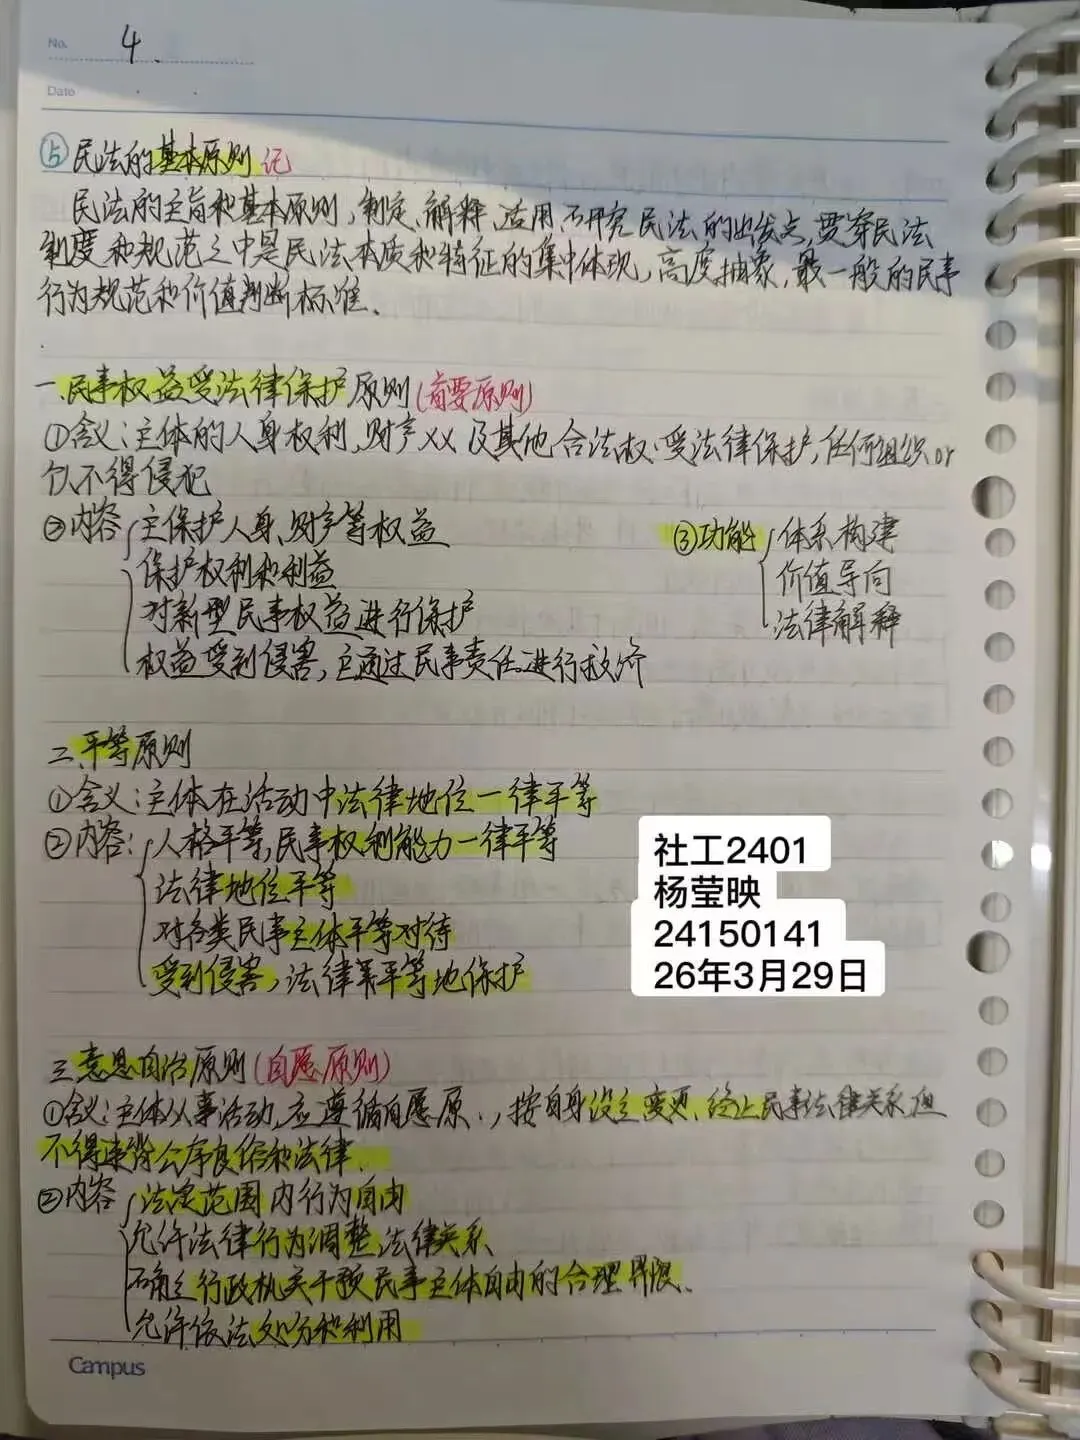 No. 4.
Date
⑤民法的基本原则 记
民法的主旨和基本原则,制定、解释、适用、研究民法的出发点,贯穿民法
制度和规范之中是民法本质和特征的集中体现,高度抽象,最一般的民事
行为规范和价值判断标准、
一、民事权益受法律保护原则(首要原则)
①含义:主体的人身权利,财产XX及其他合法权.受法律保护,任何组织or
个人不得侵犯
②内容 主保护人身、财产等权益
保护权利和利益
对新型民事权益进行保护
权益受到侵害,主通过民事责任进行救济
③功能 体系构建
价值导向
法律解释
二、平等原则
①含义:主体在活动中法律地位一律平等
②内容: 人格平等,民事权利能力一律平等
法律地位平等
对各类民事主体平等对待
受到侵害,法律平等地保护
三、意思自治原则(自愿原则)
①含义:主体从事活动,应遵循自愿原..,按自身设立、变更、终止民事法律关系,但
不得违背公序良俗和法律.
②内容 法定范围内行为自由
允许法律行为调整法律关系
确立行政机关干预民事主体自由的合理界限、
允许依法处分和利用
Campus
社工2401
杨莹映
24150141
26年3月29日